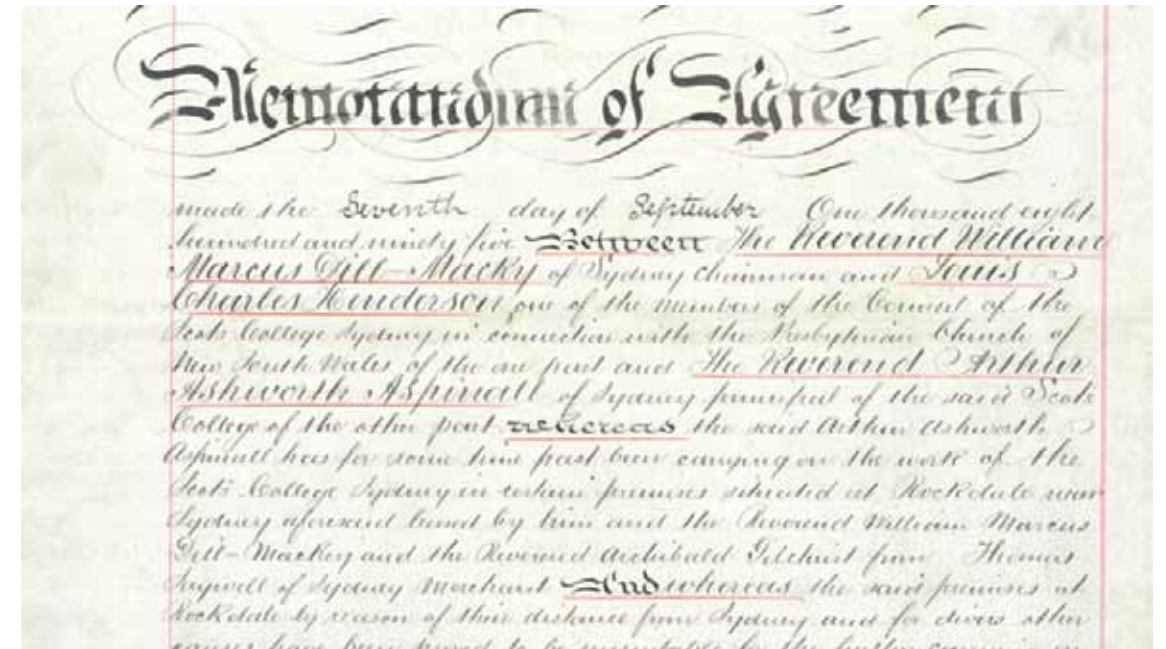 Memorandum of Agreement
made the Seventh day of September One thousand eight
hundred and ninety five Between The Reverend William
Marcus Dill-Macky of Sydney Chairman and Louis
Charles Henderson one of the members of the Council of the
Scots College Sydney in connection with the Presbyterian Church of
New South Wales of the one part and The Reverend Arthur
Ashworth Aspinall of Sydney principal of the said Scots
College of the other part whereas the said Arthur Ashworth
Aspinall has for some time past been carrying on the work of the
Scots College Sydney in certain premises situated at Rockdale near
Sydney aforesaid leased by him and the Reverend William Marcus
Dill-Mackey and the Reverend Archibald Gilchrist from Thomas
of Sydney Merchant And whereas the said premises at
Rockdale by reason of their distance from Sydney and for divers other
causes have been proved to be for the further